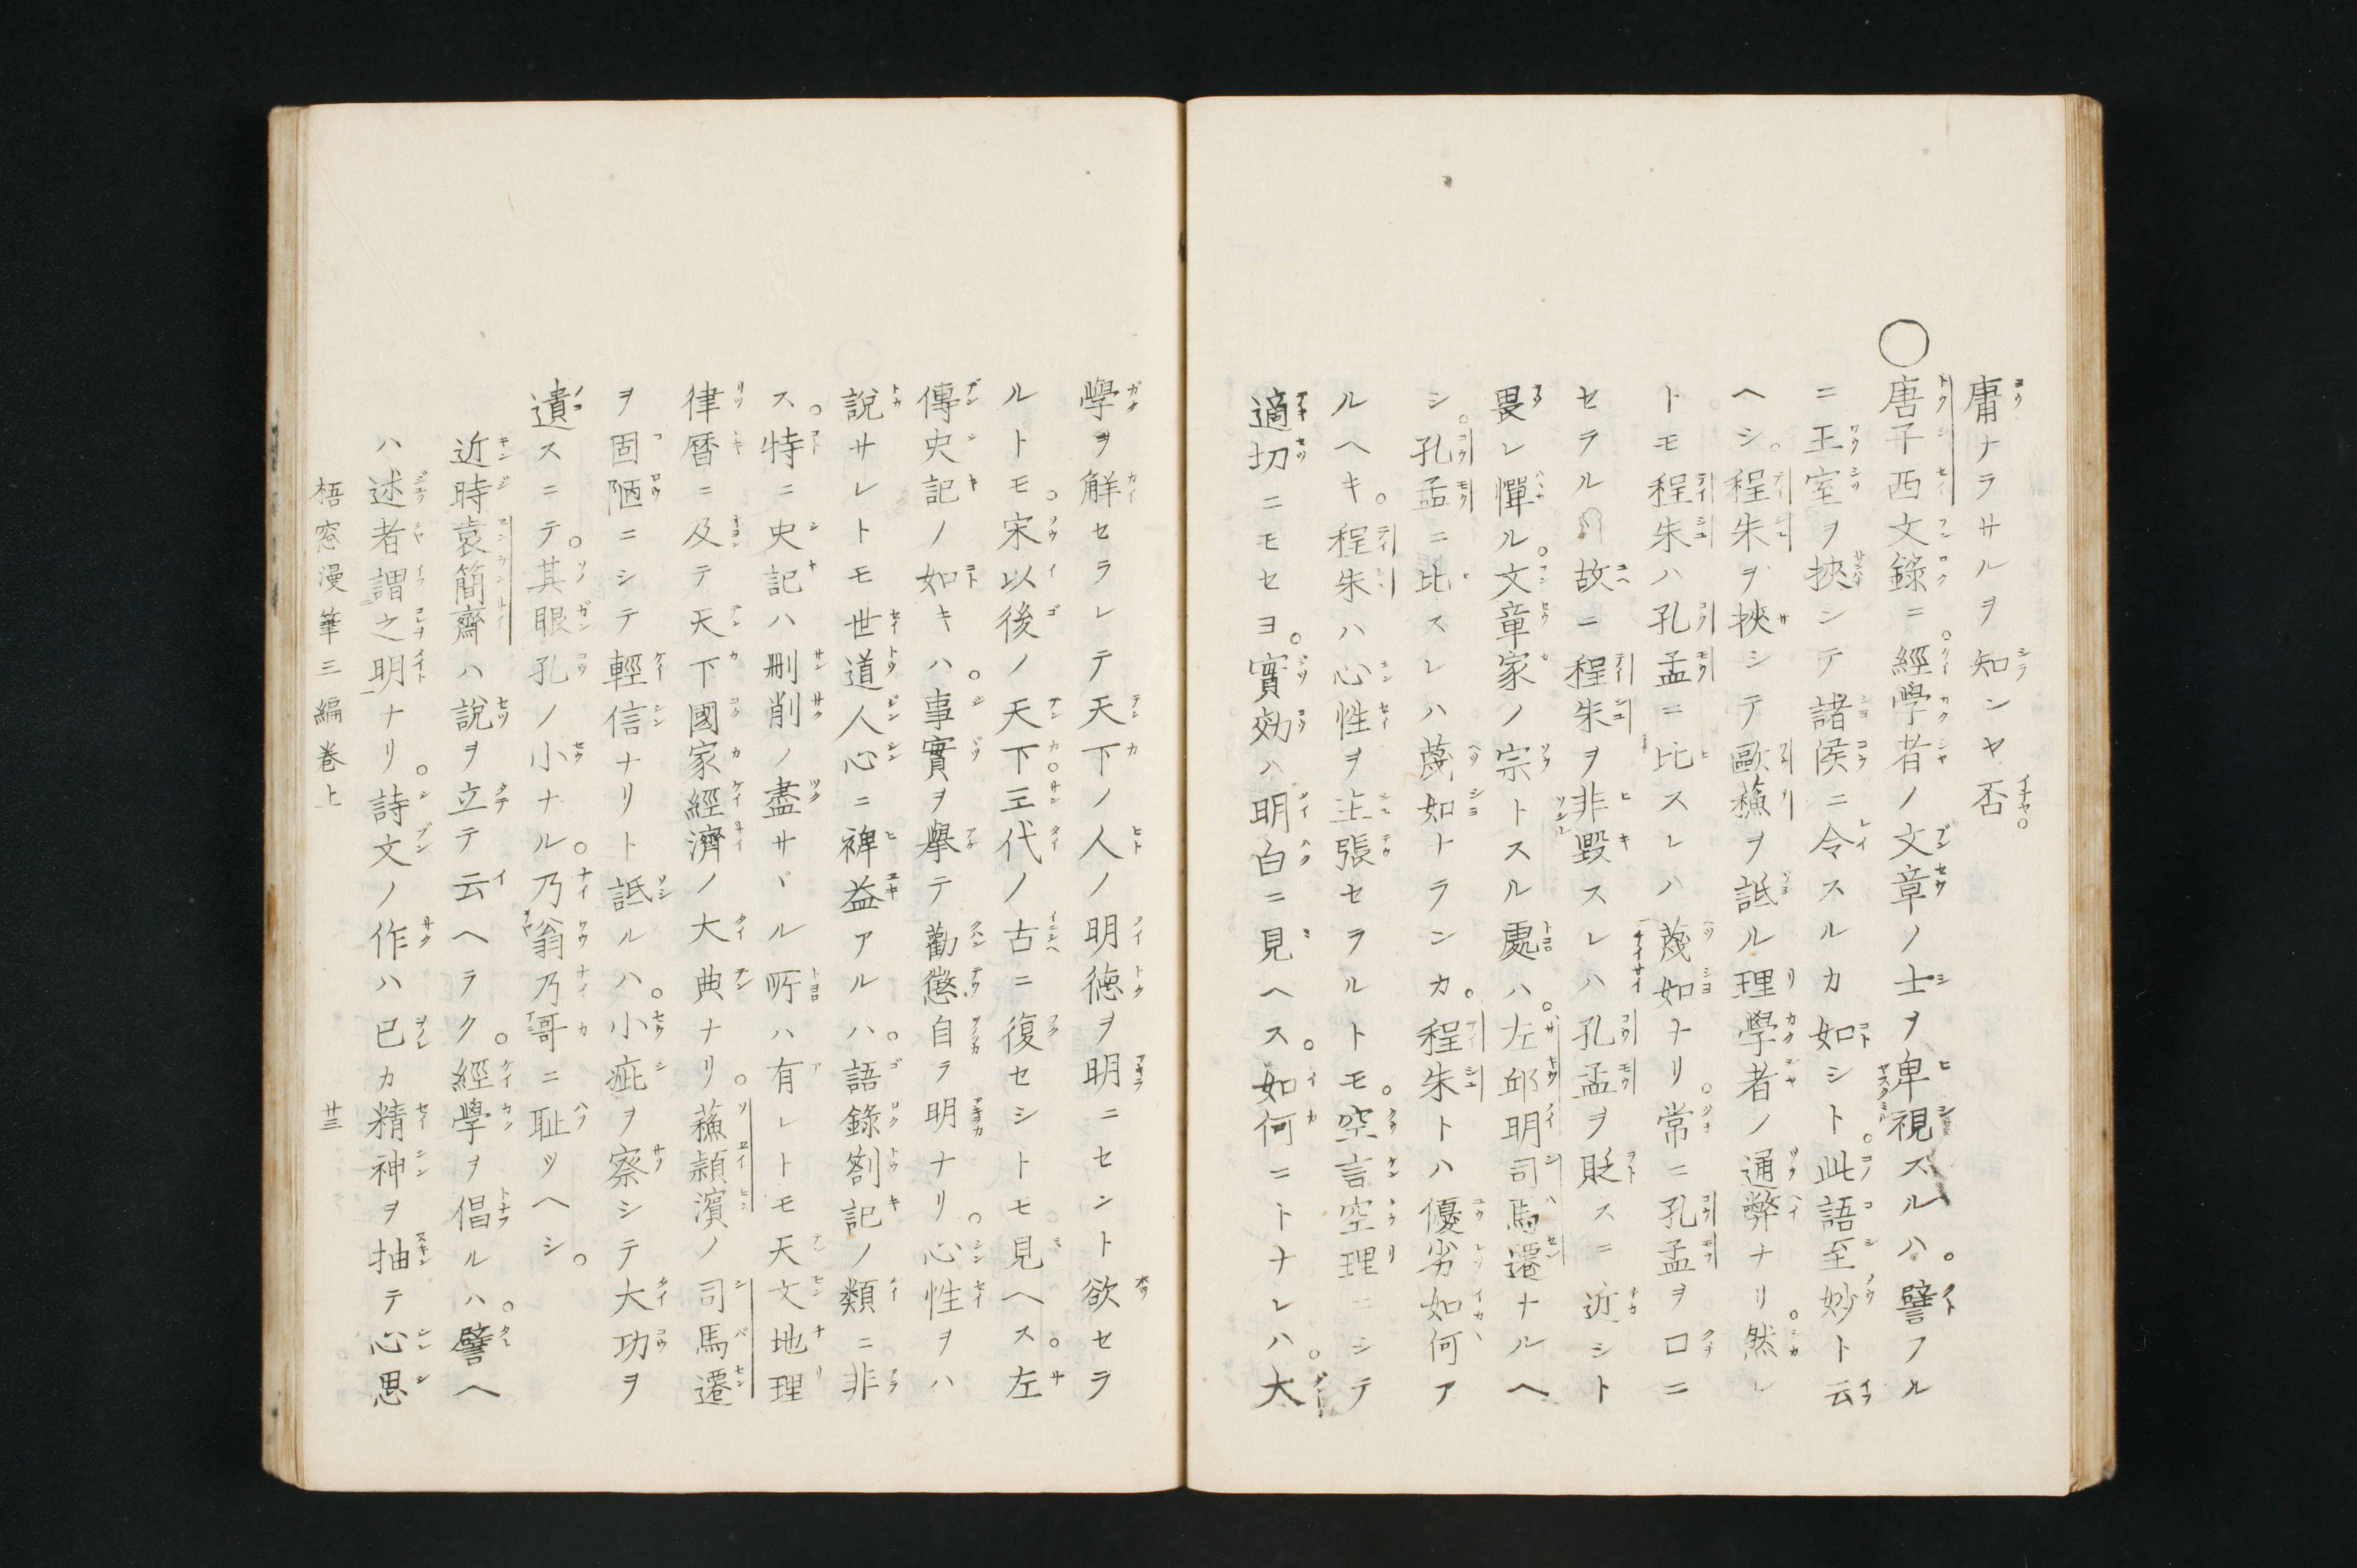 庸ナラサルヲ知ンヤ否
○唐子西文錄ニ經學者ノ文章ノ士ヲ卑視スルハ譬フル
ニ王室ヲ挾ンテ諸侯ニ令スルカ如シト此語至妙ト云
ヘシ程朱ヲ挾シテ歐蘓ヲ詆ル理學者ノ通弊ナリ然レ
トモ程朱ハ孔孟ニ比スレハ蔑如ナリ常ニ孔孟ヲ口ニ
セラル故ニ程朱ヲ非毀スレハ孔孟ヲ貶スニ近シト
畏レ憚ル文章家ノ宗トスル處ハ左邱明司馬遷ナルヘ
シ孔孟ニ比スレハ蔑如トランカ程朱トハ優劣如何ア
ルヘキ程朱ハ心性ヲ主張セラルトモ空言空理ニシテ
適切ニモセヨ實効ハ明白ニ見ヘス如何ニトナレハ大
學ヲ解セラレテ天下ノ人ノ明徳ヲ明ニセント欲セラ
ルトモ宋以後ノ天下三代ノ古ニ復セシトモ見ヘス左
傳史記ノ如キハ事實ヲ擧テ勸懲自ラ明ナリ心性ヲハ
說サレトモ世道人心ニ裨益アルハ語錄劄記ノ類ニ非
ス特ニ史記ハ刪削ノ盡サヾル所ハ有レトモ天文地理
律曆ニ及テ天下國家經濟ノ大典ナリ蘓潁濱ノ司馬遷
ヲ固陋ニシテ輕信ナリト詆ルハ小疵ヲ察シテ大功ヲ
遺スニテ其眼孔ノ小ナル乃翁乃哥ニ耻ツヘシ
近時袁簡齋ハ說ヲ立テ云ヘラク經學ヲ倡ルハ譬ヘ
ハ述者謂之明ナリ詩文ノ作ハ已カ精神ヲ抽テ心思
梧窓漫筆三編卷上　廿三